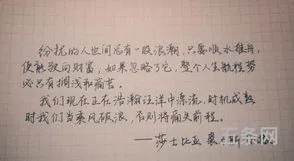 纷扰的人世间总有一股浪潮，只要顺水推舟，
便能驶向财富，如果忽略了它，整个人生航程势
必只有搁浅和痛苦。
我们现在正在浩瀚汪洋中漂流，时机成熟
时我们当乘风破浪，否则将痛失前程。
——莎士比亚